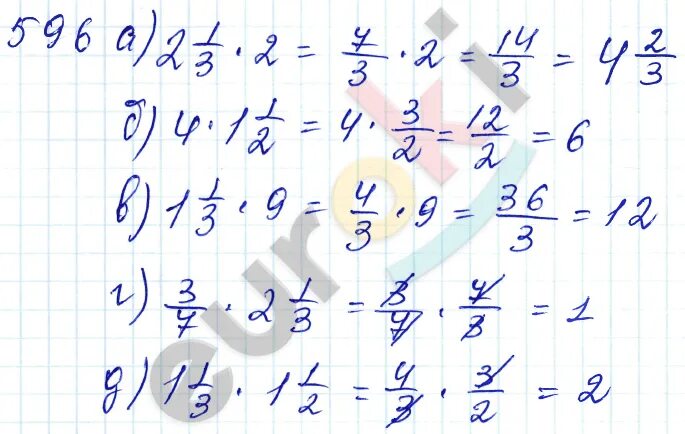 596 а) 2 1/3 · 2 = 7/3 · 2 = 14/3 = 4 2/3
б) 4 · 1 1/2 = 4 · 3/2 = 12/2 = 6
в) 1 1/3 · 9 = 4/3 · 9 = 36/3 = 12
г) 3/7 · 2 1/3 = 3/7 · 7/3 = 1
д) 1 1/3 · 1 1/2 = 4/3 · 3/2 = 2
euroki